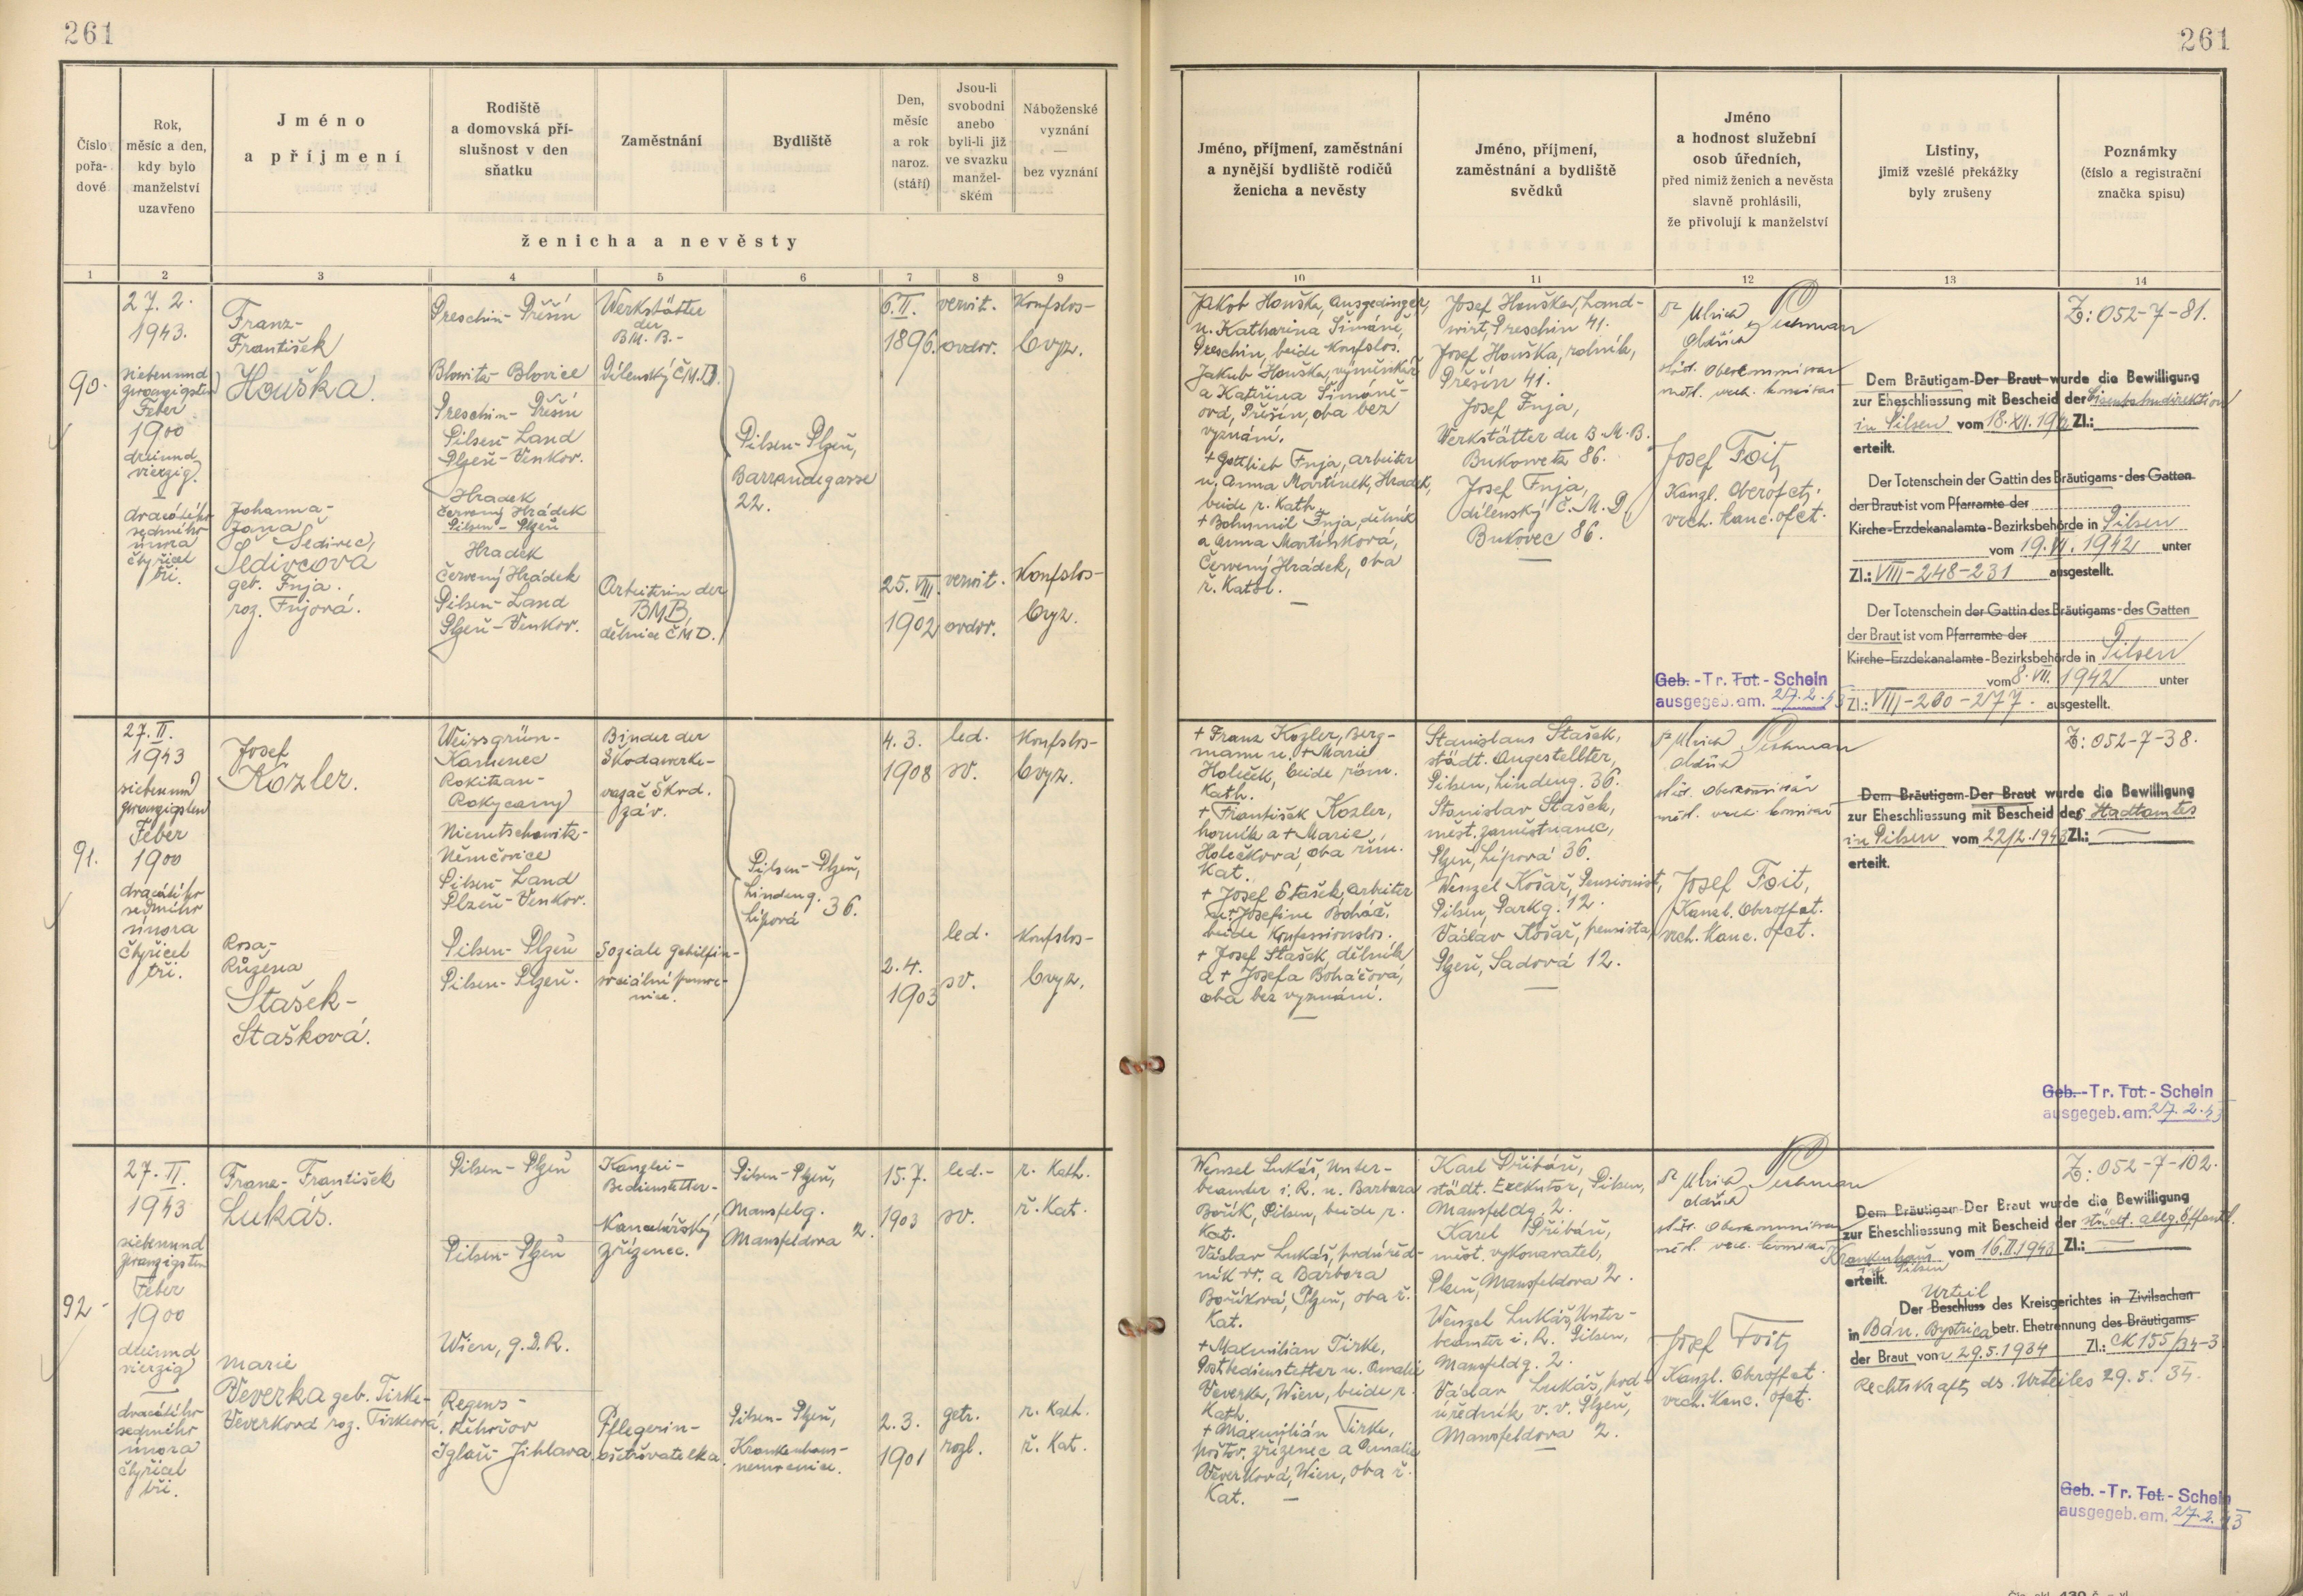 261
261
Číslo
pořa-
dové
Rok,
měsíc a den,
kdy bylo
manželství
uzavřeno
Jméno
a příjmení
Rodiště
a domovská pří-
slušnost v den
sňatku
Zaměstnání
Bydliště
Den,
měsíc
a rok
naroz.
(stáří)
Jsou-li
svobodni
anebo
byli-li již
ve svazku
manžel-
ském
Náboženské
vyznání
—
bez vyznání
ženicha a nevěsty
Jméno, příjmení, zaměstnání
a nynější bydliště rodičů
ženicha a nevěsty
Jméno, příjmení,
zaměstnání a bydliště
svědků
Jméno
a hodnost služební
osob úředních,
před nimiž ženich a nevěsta
slavně prohlásili,
že přivolují k manželství
Listiny,
jimiž vzešlé překážky
byly zrušeny
Poznámky
(číslo a registrační
značka spisu)
1 2 3 4 5 6 7 8 9 10 11 12 13 14
90.
27. 2.
1943.
siebenund
zwanzigsten
Feber
1900
dreiund
vierzig.
dvacátého
sedmého
února
čtyřicet
tři.
Franz-
František
Houška.
Johanna-
Jana
Šedivec,
Šedivcová
geb. Fnja.
roz. Fnjová.
Preschin- Přešín
Blowitz- Blovice
Preschin- Přešín
Pilsen- Land
Plzeň- Venkov.
Hradek
Červený Hrádek
Pilsen- Plzeň
Hradek
Červený Hrádek
Pilsen- Land
Plzeň- Venkov.
Werkstätter
der
BM. B.-
Dílenský Č.M.D.
Arbeiterin der
BMB,
dělnice ČMD.
Pilsen- Plzeň,
Barrandegasse
22.
6. II.
1896.
25. VIII.
1902
verwit.
ovdov.
verwit.
ovdov.
Konfslos-
bvyz.
Konfslos-
bvyz.
Jakob Houška, Ausgedinger,
u. Katharina Šimáně,
Preschin, beide Konfslos.
Jakub Houška, výměnkář
a Kateřina Šimáně-
ová, Přešín, oba bez
vyznání.
+ Gottlieb Fnja, Arbeiter
u. Anna Martinek, Hradek,
beide r. Kath.
+ Bohumil Fnja, dělník
a Anna Martínková,
Červený Hrádek, oba
ř. Kath.
Josef Houška, Land-
wirt, Preschin 41.
Josef Houška, rolník,
Přešín 41.
Josef Fnja,
Werkstätter der B.M.B.
Bukowetz 86.
Josef Fnja,
dílenský Č.M.D,
Bukovec 86.
Dr Ulrich Pechman
Oldřich
städt. Oberkommissar
měst. vrch. komisař
Josef Foit,
Kanzl. Oberofft.
vrch. kanc. ofct.
Dem Bräutigam-Der Braut wurde die Bewilligung
zur Eheschliessung mit Bescheid der Eisenbahndirektion
in Pilsen vom 18. XII. 1942 Zl.:
erteilt.
Der Totenschein der Gattin des Bräutigams - des Gatten
der Braut ist vom Pfarramte der
Kirche-Erzdekanalamte-Bezirksbehörde in Pilsen
vom 19. VI. 1942 unter
Zl.: VIII-248-231 ausgestellt.
Der Totenschein der Gattin des Bräutigams - des Gatten
der Braut ist vom Pfarramte der
Kirche-Erzdekanalamte-Bezirksbehörde in Pilsen
vom 8. VII. 1942 unter
Zl.: VIII-260-277. ausgestellt.
Geb. - Tr. Tot. - Schein
ausgegeb. am. 27.2.43
Z: 052-7-81.
91.
27. II.
1943
siebenund
zwanzigsten
Feber
1900
dvacátého
sedmého
února
čtyřicet
tři.
Josef
Kozler.
Rosa-
Růžena
Stašek-
Stašková.
Weissgrün-
Kamenec
Rokitzan-
Rokycany
Niemtschowitz-
Němčovice
Pilsen- Land
Plzeň- Venkov.
Pilsen- Plzeň
Pilsen- Plzeň.
Binder der
Škodawerke-
vazač Škod.
záv.
Soziale Gehilfin-
sociální pomoc-
nice.
Pilsen- Plzeň,
Lindeng.
Lípová 36.
4. 3.
1908
2. 4.
1903
led.
sv.
led.
sv.
Konfslos-
bvyz.
Konfslos-
bvyz.
+ Franz Kozler, Berg-
mann u. + Marie
Holeček, beide röm.
Kath.
+ František Kozler,
horník a + Marie
Holečková, oba řím.
Kat.
+ Josef Stašek, Arbeiter
u. + Josefine Boháč,
beide Konfessionslos.
+ Josef Stašek, dělník
a + Josefa Boháčová,
oba bez vyznání.
Stanislaus Stašek,
städt. Angestellter,
Pilsen, Lindeng. 36.
Stanislav Stašek,
měst. zaměstnanec,
Plzeň, Lípová 36.
Wenzel Košař, Pensionist,
Pilsen, Parkg. 12.
Václav Košař, pensista,
Plzeň, Sadová 12.
Dr Ulrich Pechman
Oldřich
städt. Oberkommissär
měst. vrch. komisař
Josef Foit,
Kanzl. Oberoffct.
vrch. kanc. ofct.
Dem Bräutigam-Der Braut wurde die Bewilligung
zur Eheschliessung mit Bescheid des Stadtamtes
in Pilsen vom 22/2. 1943 Zl.:
erteilt.
Z: 052-7-38.
Geb. - Tr. Tot. - Schein
ausgegeb. am. 27.2.43
92.
27. II.
1943
siebenund
zwanzigsten
Feber
1900
dreiund
vierzig
dvacátého
sedmého
února
čtyřicet
tři.
Franz- František
Lukáš.
Marie
Veverka geb. Tirke-
Veverková roz. Tirkeová.
Pilsen- Plzeň
Pilsen- Plzeň
Wien, g.D.R.
Regens-
Řehořov
Iglau- Jihlava.
Kanzlei-
Bediensteter-
Kancelářský
zřízenec.
Pflegerin-
ošetřovatelka.
Pilsen- Plzeň,
Mansfeldg.
Mansfeldova 2.
Pilsen- Plzeň,
Krankenhaus-
nemocnice.
15. 7.
1903
2. 3.
1901
led.-
sv.
getr.
rozl.
r. Kath.
ř. Kat.
r. Kath.
ř. Kat.
Wenzel Lukáš, Unter-
beamter i. R. u. Barbara
Bořík, Pilsen, beide r.
Kat.
Václav Lukáš, podúřed-
ník vv. a Barbora
Boříková, Plzeň, oba ř.
Kat.
+ Maxmilian Tirke,
Postbediensteter u. Amalie
Veverka, Wien, beide r.
Kath.
+ Maxmilián Tirke,
poštov. zřízenec a Amalie
Veverková, Wien, oba ř.
Kat.
Karl Přibáň,
städt. Exekutor, Pilsen,
Mansfeldg. 2.
Karel Přibáň,
měst. vykonavatel,
Plzeň, Mansfeldova 2.
Wenzel Lukáš, Unter-
beamter i. R. Pilsen,
Mansfeldg. 2.
Václav Lukáš, pod-
úředník v. v. Plzeň,
Mansfeldova 2.
Dr Ulrich Pechman
Oldřich
städt. Oberkommissar
měst. vrch. komisař
Josef Foit,
Kanzl. Oberoffct.
vrch. kanc. ofct.
Dem Bräutigam-Der Braut wurde die Bewilligung
zur Eheschliessung mit Bescheid der städt. allg. öffentl.
Krankenhaus vom 16. II. 1943 Zl.:
in Pilsen
erteilt.
Urteil
Der Beschluss des Kreisgerichtes in Zivilsachen
in Báň. Bystrica betr. Ehetrennung des Bräutigams-
der Braut vom 29.5.1934 Zl.: CK 155/34-3
Rechtskraft ds. Urteiles 29. 5. 34.
Z: 052-7-102.
Geb. - Tr. Tot. - Schein
ausgegeb. am. 27.2.43